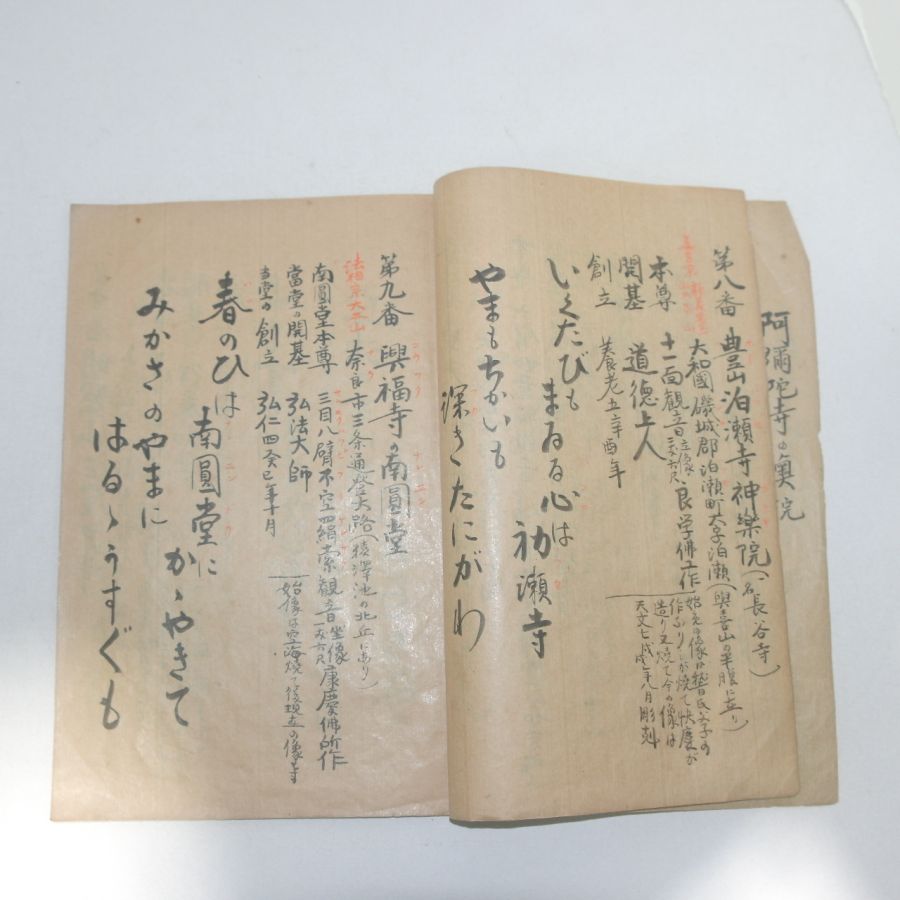 阿彌陀寺の奥院
第八番 豊山泊瀬寺神樂院(一名長谷寺)
大和國磯城郡泊瀬町大字泊瀬(與喜山の半腹に在り)
本尊 十一面觀音立像 良学佛工作
造り又焼て今の像は
天文七戊戌年八月彫刻
開基 道徳上人
創立 養老五辛酉年
いくたびも
まゐる心は
初瀬寺
やまもちかいも
深きたにがわ
第九番 興福寺の南圓堂
法相宗大本山 奈良市三条通登大路(猿澤池の北丘にあり)
南圓堂本尊 三目八臂不空羂索觀音坐像 康慶佛師作
當堂の開基 弘法大師
当堂の創立 弘仁四癸巳年十月
春のひは
南圓堂に
かゝやきて
みかさの
やまに
はるゝうすぐも